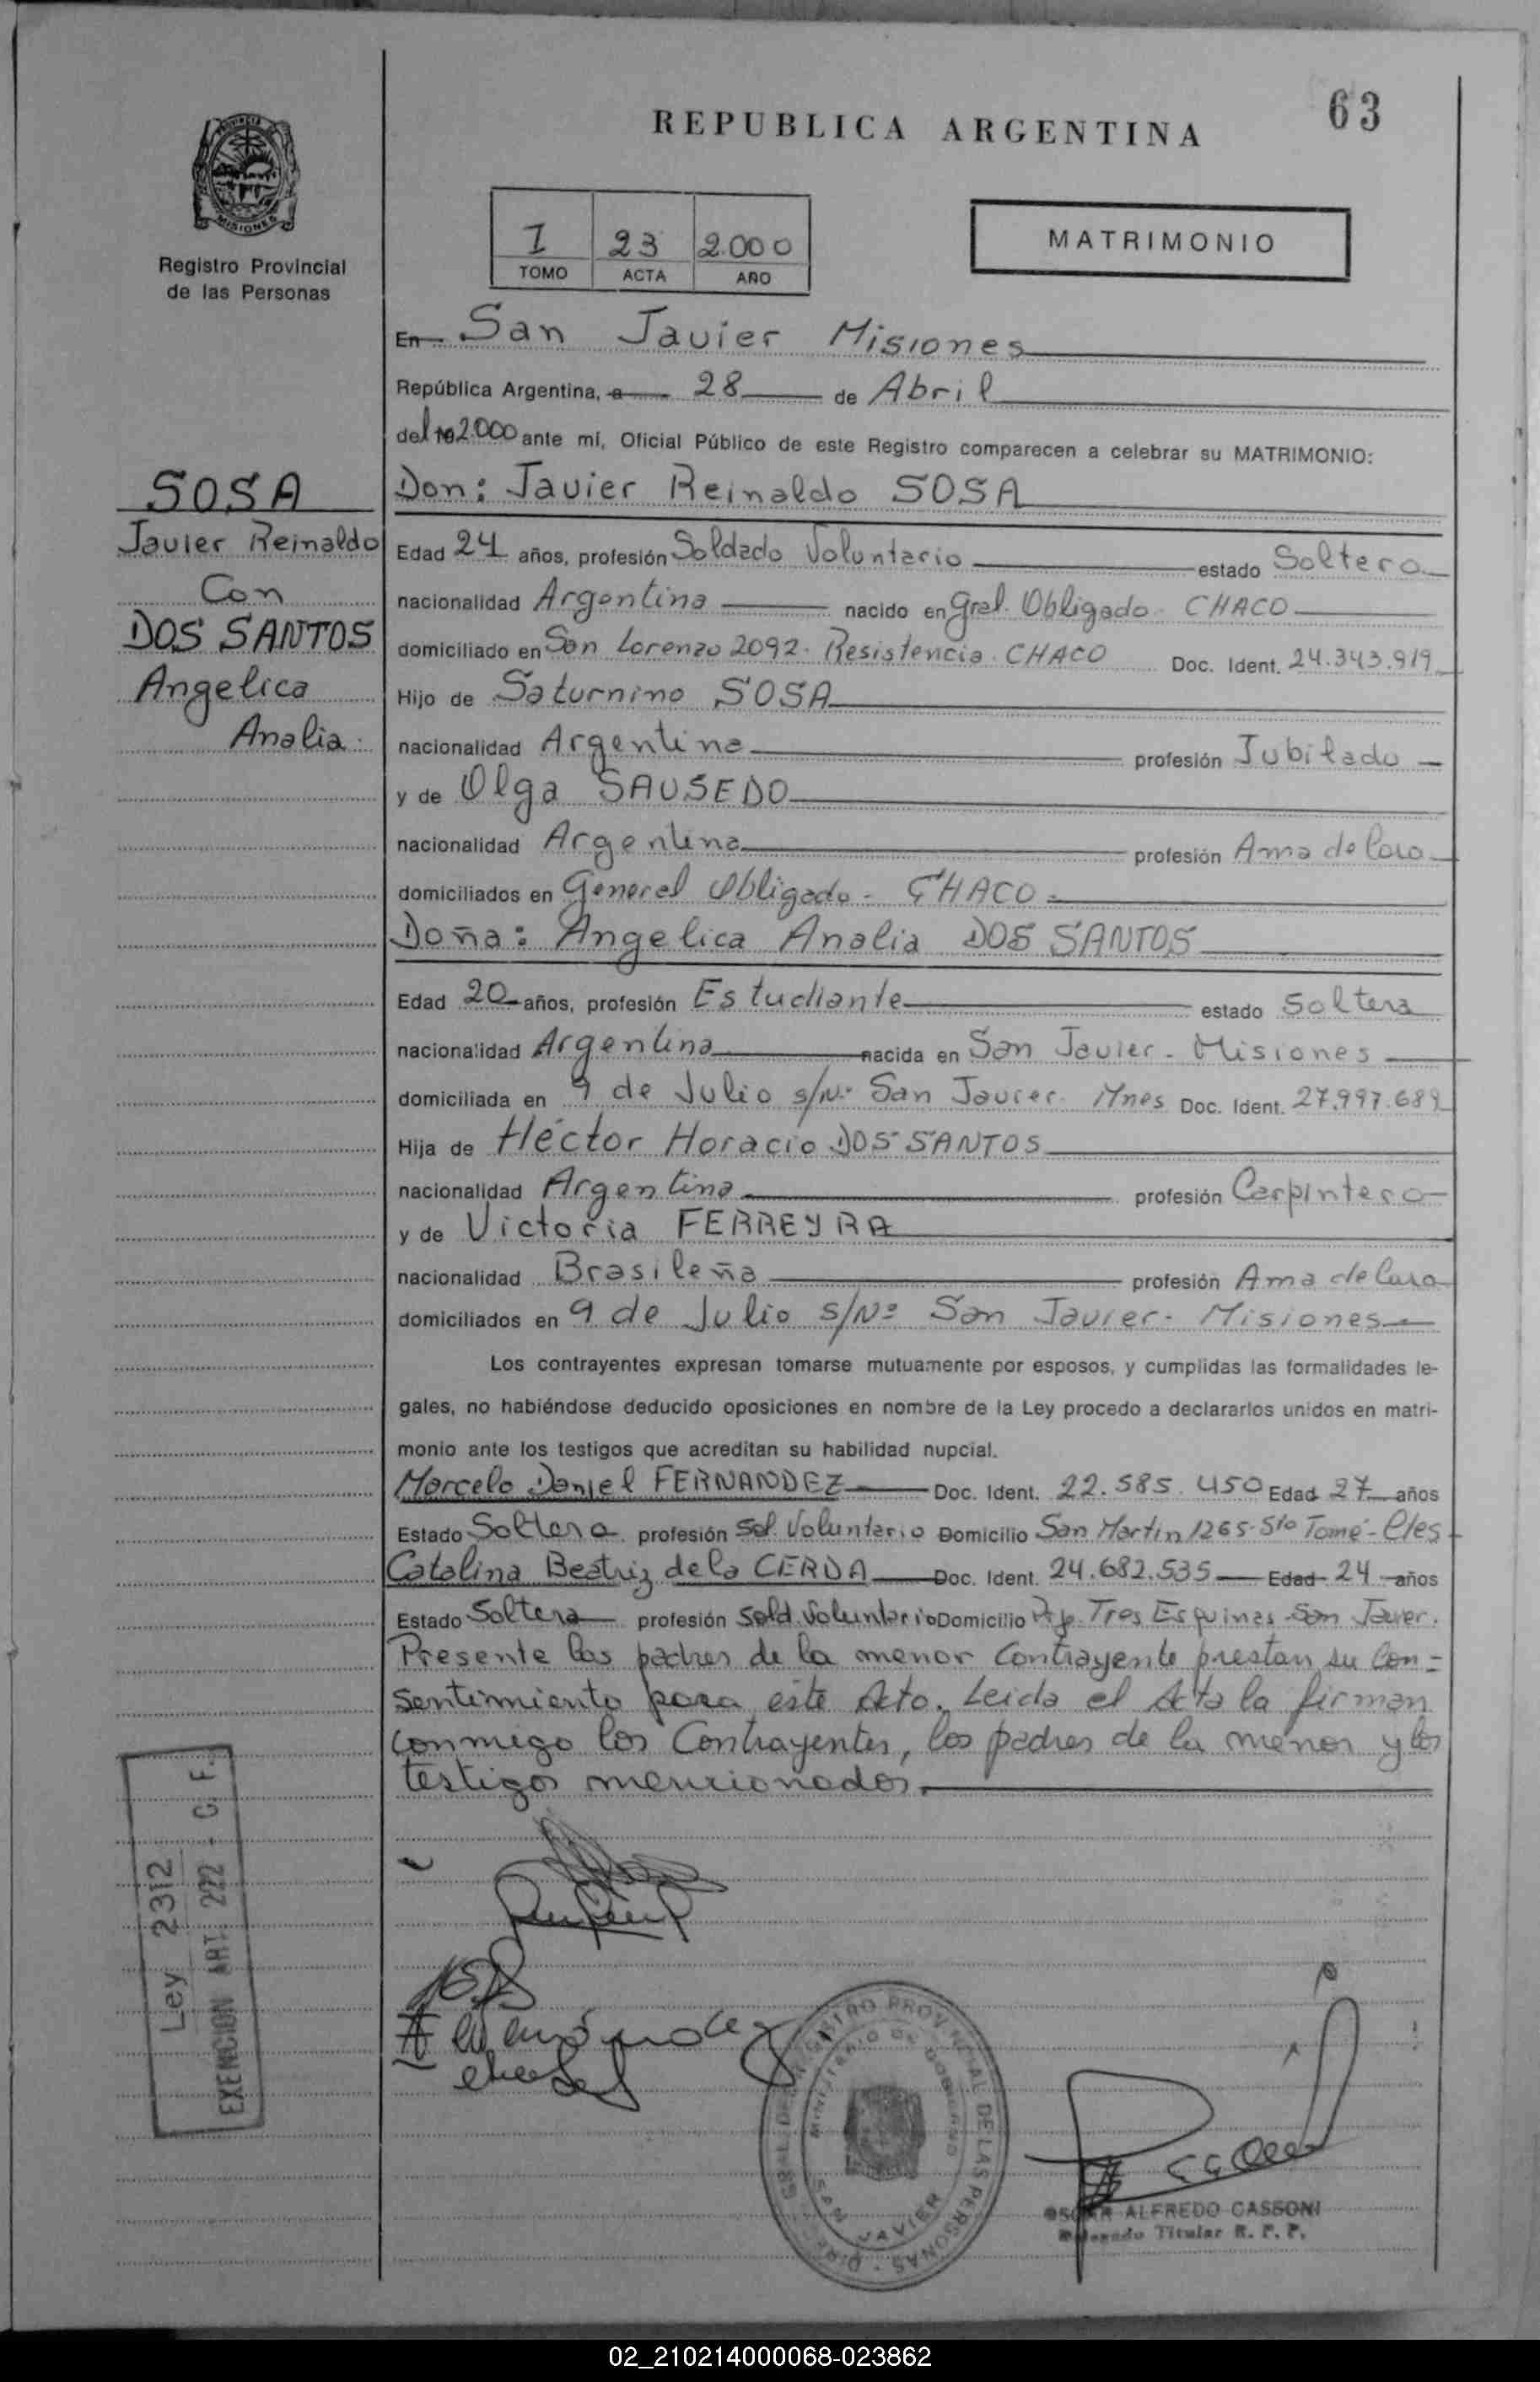 63
REPUBLICA ARGENTINA
PROVINCIA DE
MISIONES
Registro Provincial
de las Personas
I 23 2.000
TOMO ACTA AÑO
MATRIMONIO
En San Javier Misiones
República Argentina, a 28 de Abril
del 19 2.000 ante mí, Oficial Público de este Registro comparecen a celebrar su MATRIMONIO:
SOSA
Javier Reinaldo
Con
DOS SANTOS
Angelica
Analia.
Don: Javier Reinaldo SOSA
Edad 24 años, profesión Soldado Voluntario estado Soltero
nacionalidad Argentina nacido en Gral. Obligado - CHACO
domiciliado en San Lorenzo 2092. Resistencia. CHACO Doc. Ident. 24.343.919
Hijo de Saturnino SOSA
nacionalidad Argentina profesión Jubilado
y de Olga SAUSEDO
nacionalidad Argentina profesión Ama de Casa
domiciliados en General Obligado - CHACO
Doña: Angelica Analia DOS SANTOS
Edad 20 años, profesión Estudiante estado Soltera
nacionalidad Argentina nacida en San Javier - Misiones
domiciliada en 9 de Julio s/Nº San Javier. Mnes Doc. Ident. 27.997.689
Hija de Héctor Horacio DOS SANTOS
nacionalidad Argentina profesión Carpintero
y de Victoria FERREYRA
nacionalidad Brasileña profesión Ama de Casa
domiciliados en 9 de Julio s/Nº San Javier - Misiones
Los contrayentes expresan tomarse mutuamente por esposos, y cumplidas las formalidades le-
gales, no habiéndose deducido oposiciones en nombre de la Ley procedo a declararlos unidos en matri-
monio ante los testigos que acreditan su habilidad nupcial.
Marcelo Daniel FERNANDEZ Doc. Ident. 22.585.450 Edad 27 años
Estado Soltero profesión Sol. Voluntario Domicilio San Martin 1265 - Sto Tomé - Ctes
Catalina Beatriz de la CERDA Doc. Ident. 24.682.535 Edad 24 años
Estado Soltera profesión Sold. Voluntario Domicilio Pje. Tres Esquinas San Javier.
Presente los padres de la menor Contrayente prestan su Con=
sentimiento para este Acto. Leida el Acta la firman
conmigo los Contrayentes, los padres de la menor y los
testigos mencionados.
Ley 2312
EXENCION ART. 222 - C. F.
DIRE. GRAL. DEL REGISTRO PROVINCIAL DE LAS PERSONAS
MINISTERIO DE GOBIERNO
SAN JAVIER
OSCAR ALFREDO CASSONI
Delegado Titular R. P. P.
02_210214000068-023862